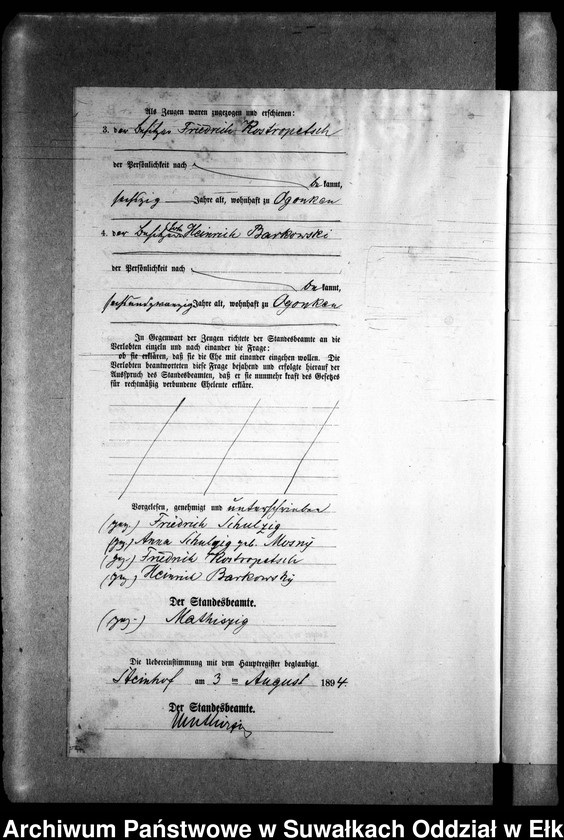 Als Zeugen waren zugezogen und erschienen:
3. der Besitzer Friedrich Kostropetsch
der Persönlichkeit nach
bekannt,
sechzig Jahre alt, wohnhaft zu Ogonken
4. der Besitzersohn Heinrich Barkowski
der Persönlichkeit nach
bekannt,
sechsundzwanzig Jahre alt, wohnhaft zu Ogonken
In Gegenwart der Zeugen richtete der Standesbeamte an die
Verlobten einzeln und nach einander die Frage:
ob sie erklären, daß sie die Ehe mit einander eingehen wollen. Die
Verlobten beantworteten diese Frage bejahend und erfolgte hierauf der
Ausspruch des Standesbeamten, daß er sie nunmehr kraft des Gesetzes
für rechtmäßig verbundene Eheleute erkläre.
Vorgelesen, genehmigt und unterschrieben
(gez.) Friedrich Schulzig
(gez.) Anna Schulzig geb. Mosny
(gez.) Friedrich Kostropetsch
(gez.) Heinrich Barkowsky
Der Standesbeamte.
(gez.) Mathiszig
Die Uebereinstimmung mit dem Hauptregister beglaubigt.
Steinhof am 3 ten August 1894.
Der Standesbeamte.
Mathiszig
Archiwum Państwowe w Suwałkach Oddział w Ełk